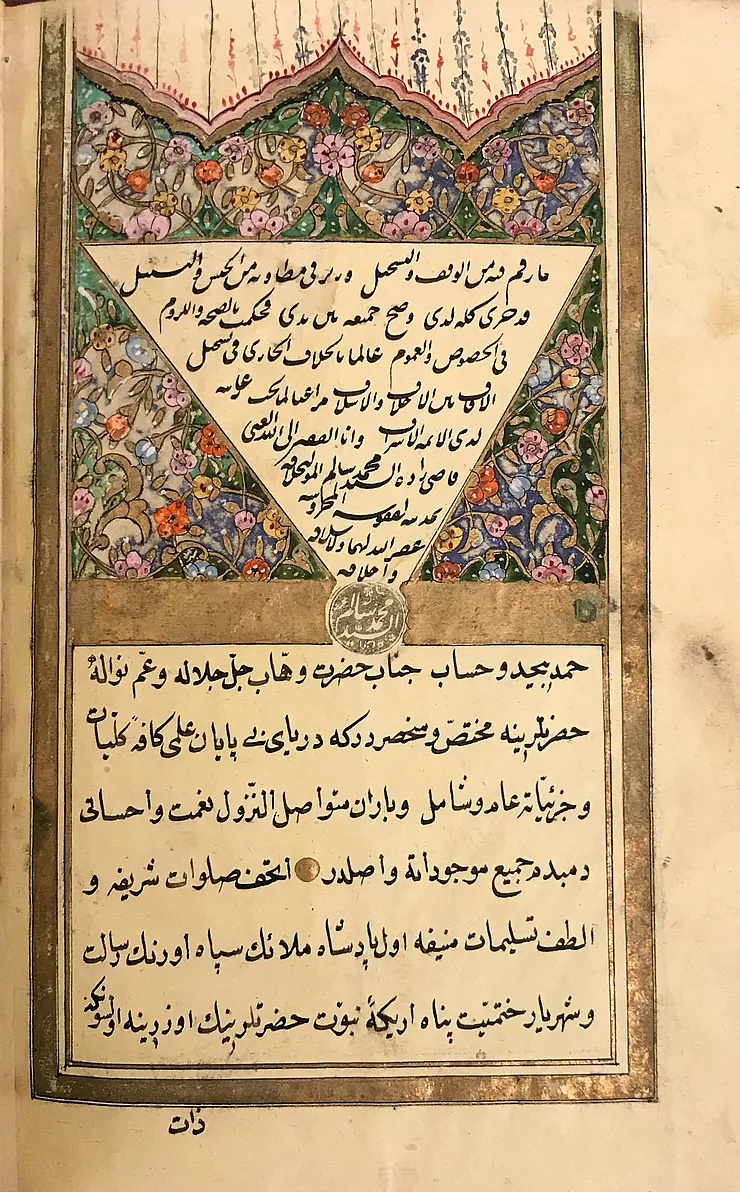 ما رقم فيه من الوقف والتسجيل وزبر في مطاويه من الحبس والتسبيل
قد جرى كله لدى وصح جميعه بين يدى فحكمت بالصحة واللزوم
فى الخصوص والعموم عالما بالخلاف الجارى فى تسجيل
الاوقاف بين الاخلاف والاسلاف مراعيا لما يجب
لدى الائمة الاشراف وانا الفقير الى الله الغنى
قاضى زاده السيد محمد سالم المولى
المحروسة
غفر الله لهما ولاسلافه
واخلافه
محمد سالم السيد
حمد بيحد وحساب جناب حضرت وهّاب جلّ جلاله وعمّ نواله
حضرتلرينه مختصّ ومنحصر در كه درياى بى پايان علمى كافهٔ كلّيات
و جزئيّاته عام و شامل و باران متواصل النّزول نعمت واحسانى
دمبدم جميع موجوداته واصلدر اتحف صلوات شريفه و
الطف تسليمات منيفه اول پادشاه ملائك سپاه اورنك رسالت
و شهريار ختميّت پناه اريكهٔ نبوّت حضرتلرينك اوزرينه اولسونكه
ذات